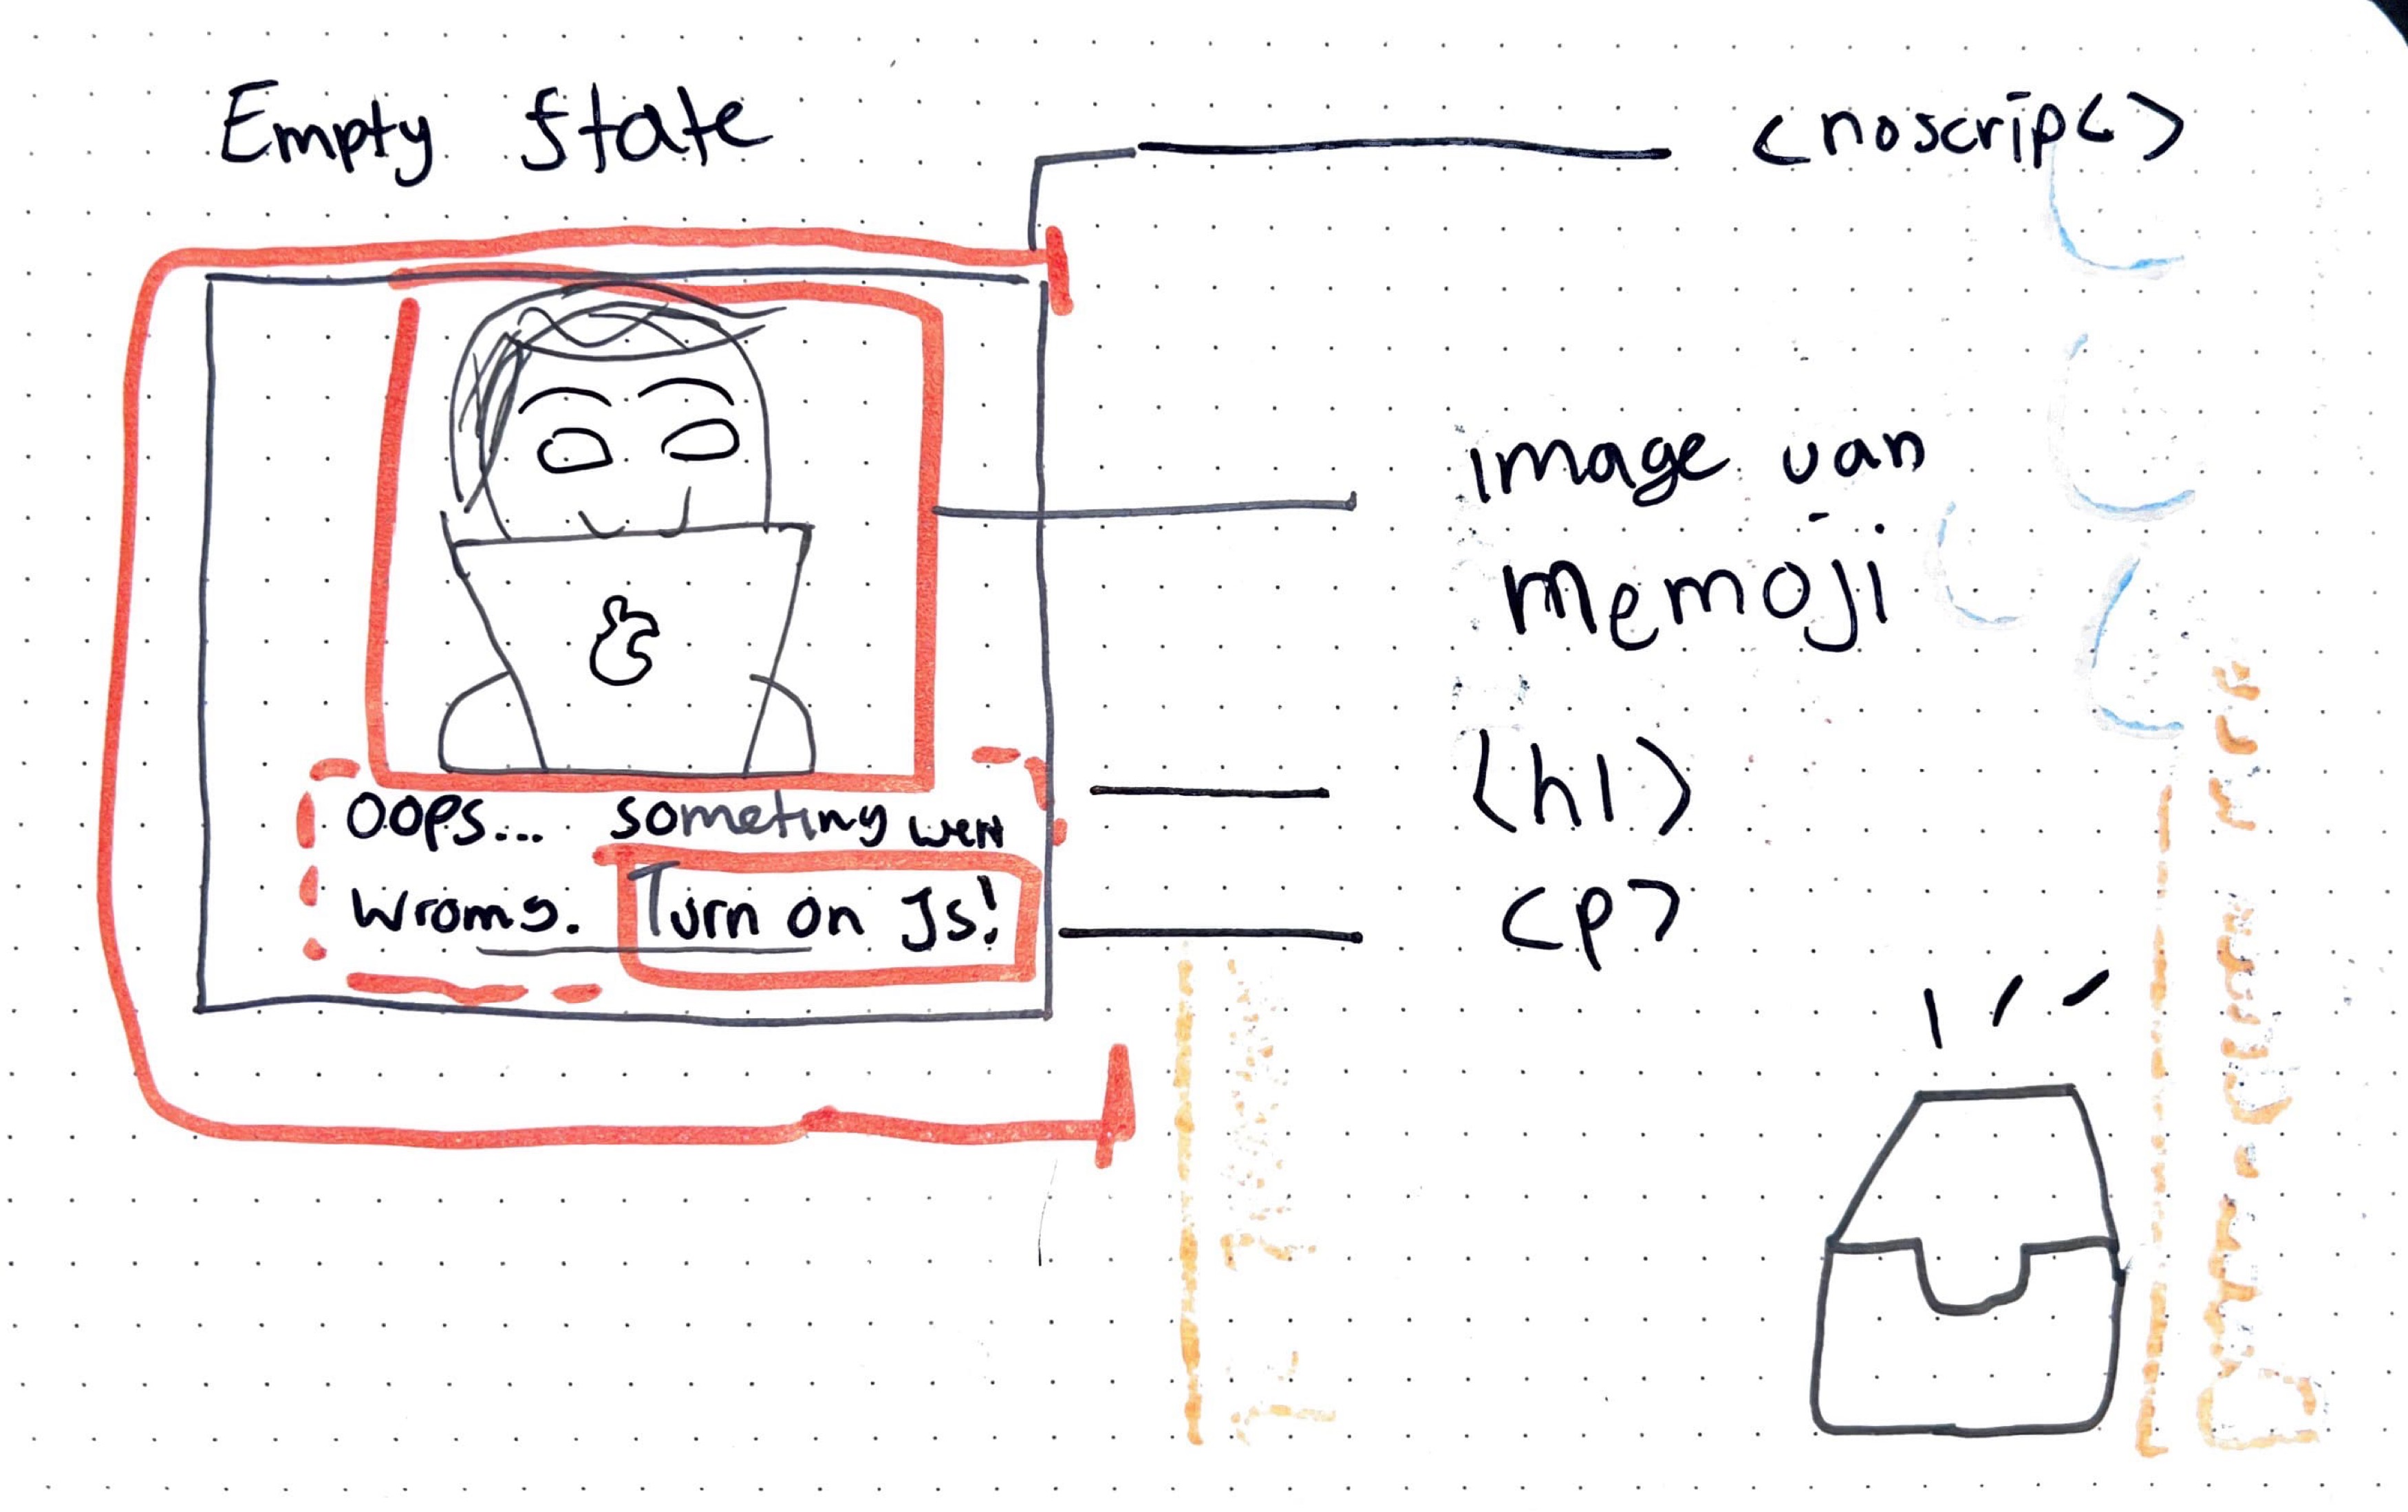 Empty state
<noscript>
image van
memoji
<h1>
Oops... someting went
Wrong. Turn on Js!
<p>